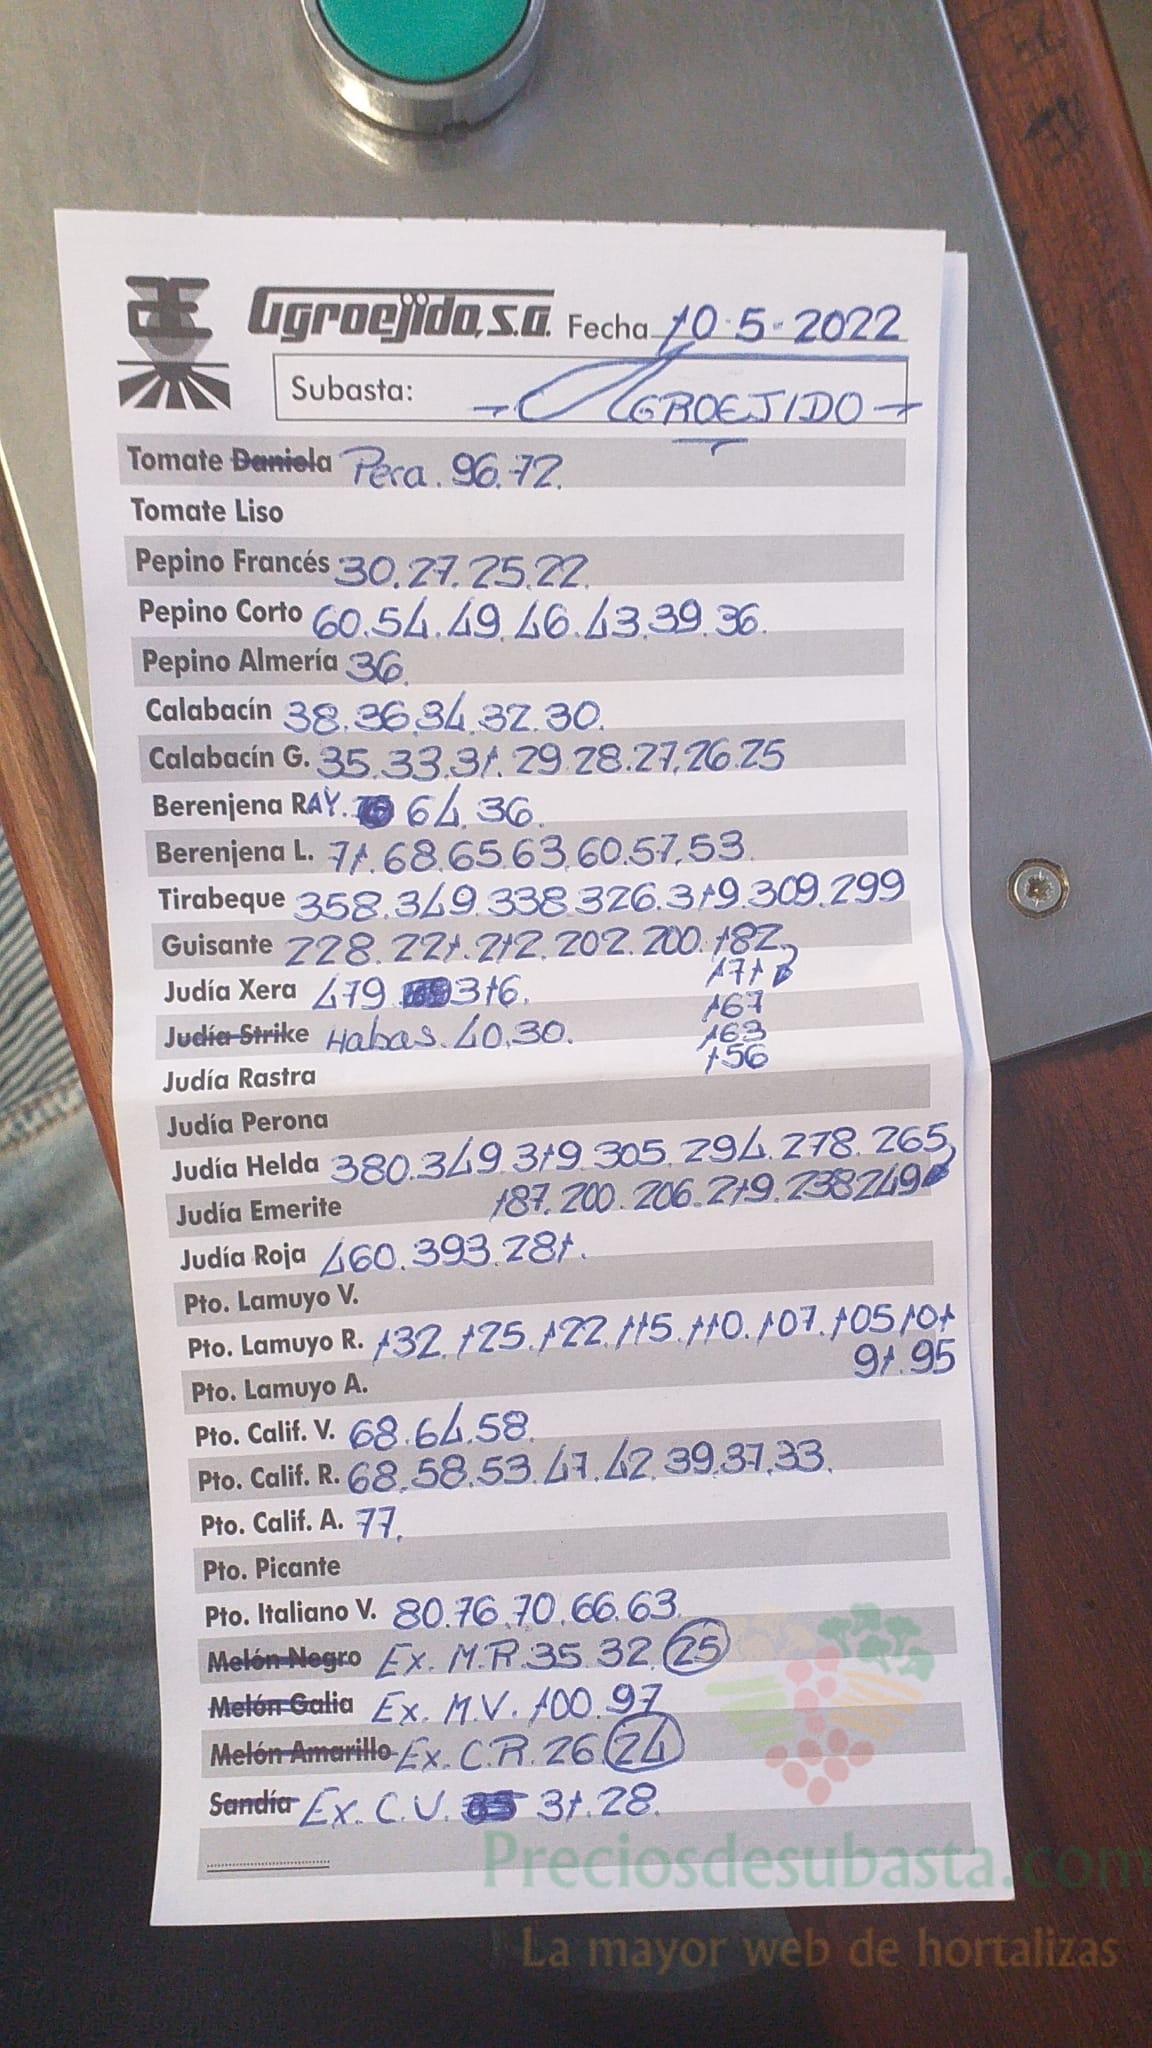 Agroejido, S.A. Fecha 10-5-2022
Subasta: AGROEJIDO
Tomate Daniela Pera. 96.72.
Tomate Liso
Pepino Francés 30.27.25.22.
Pepino Corto 60.54.49.46.43.39.36.
Pepino Almería 36.
Calabacín 38.36.34.32.30.
Calabacín G. 35.33.31.29.28.27.26.25
Berenjena RAY. 64.36.
Berenjena L. 71.68.65.63.60.57.53.
Tirabeque 358.349.338.326.319.309.299
Guisante 228.221.212.202.200.182
171
Judía Xera 479 316.
167
Judía Strike Habas. 40.30.
163
156
Judía Rastra
Judía Perona
Judía Helda 380.349.319.305.294.278.265
Judía Emerite 187.200.206.219.238 249
Judía Roja 460.393.281.
Pto. Lamuyo V.
Pto. Lamuyo R. 132.125.122.115.110.107.105 101
91.95
Pto. Lamuyo A.
Pto. Calif. V. 68.64.58.
Pto. Calif. R. 68.58.53.47.42.39.37.33.
Pto. Calif. A. 77.
Pto. Picante
Pto. Italiano V. 80.76.70.66.63.
Melón Negro Ex. M.R. 35 32. 25
Melón Galia Ex. M.V. 100.97
Melón Amarillo Ex. C.R. 26. 24
Sandía Ex. C.V. 31.28.
Preciosdesubasta.com
La mayor web de hortalizas